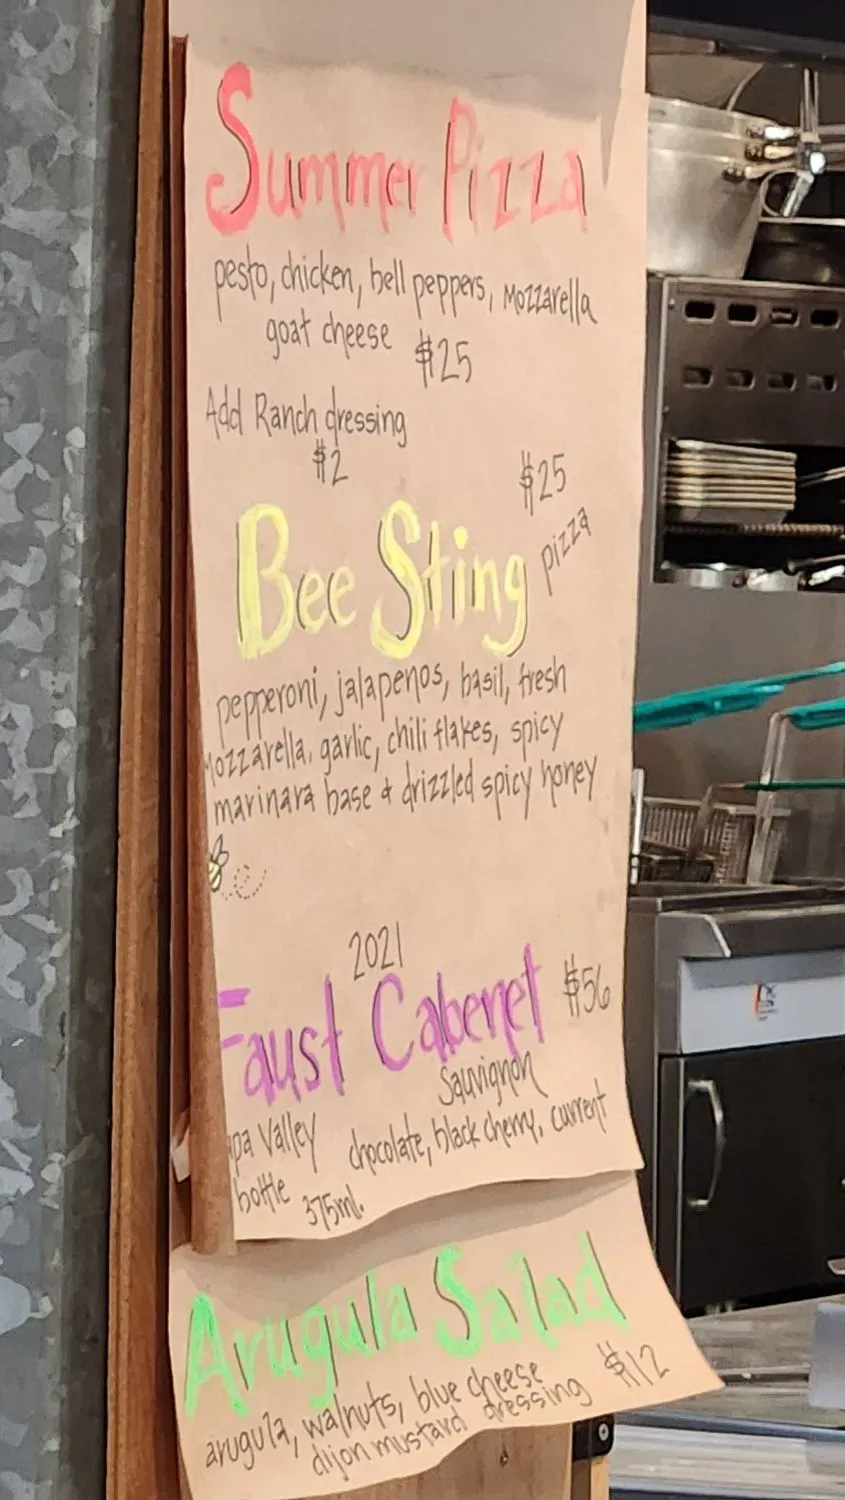 Summer Pizza
pesto, chicken, bell peppers, Mozzarella
goat cheese $25
Add Ranch dressing
$2
$25
Bee Sting pizza
pepperoni, jalapenos, basil, fresh
mozzarella, garlic, chili flakes, spicy
marinara base & drizzled spicy honey
2021
Faust Cabernet $56
Sauvignon
pa Valley chocolate, black cherry, current
bottle 375ml.
Arugula Salad
arugula, walnuts, blue cheese $12
dijon mustard dressing